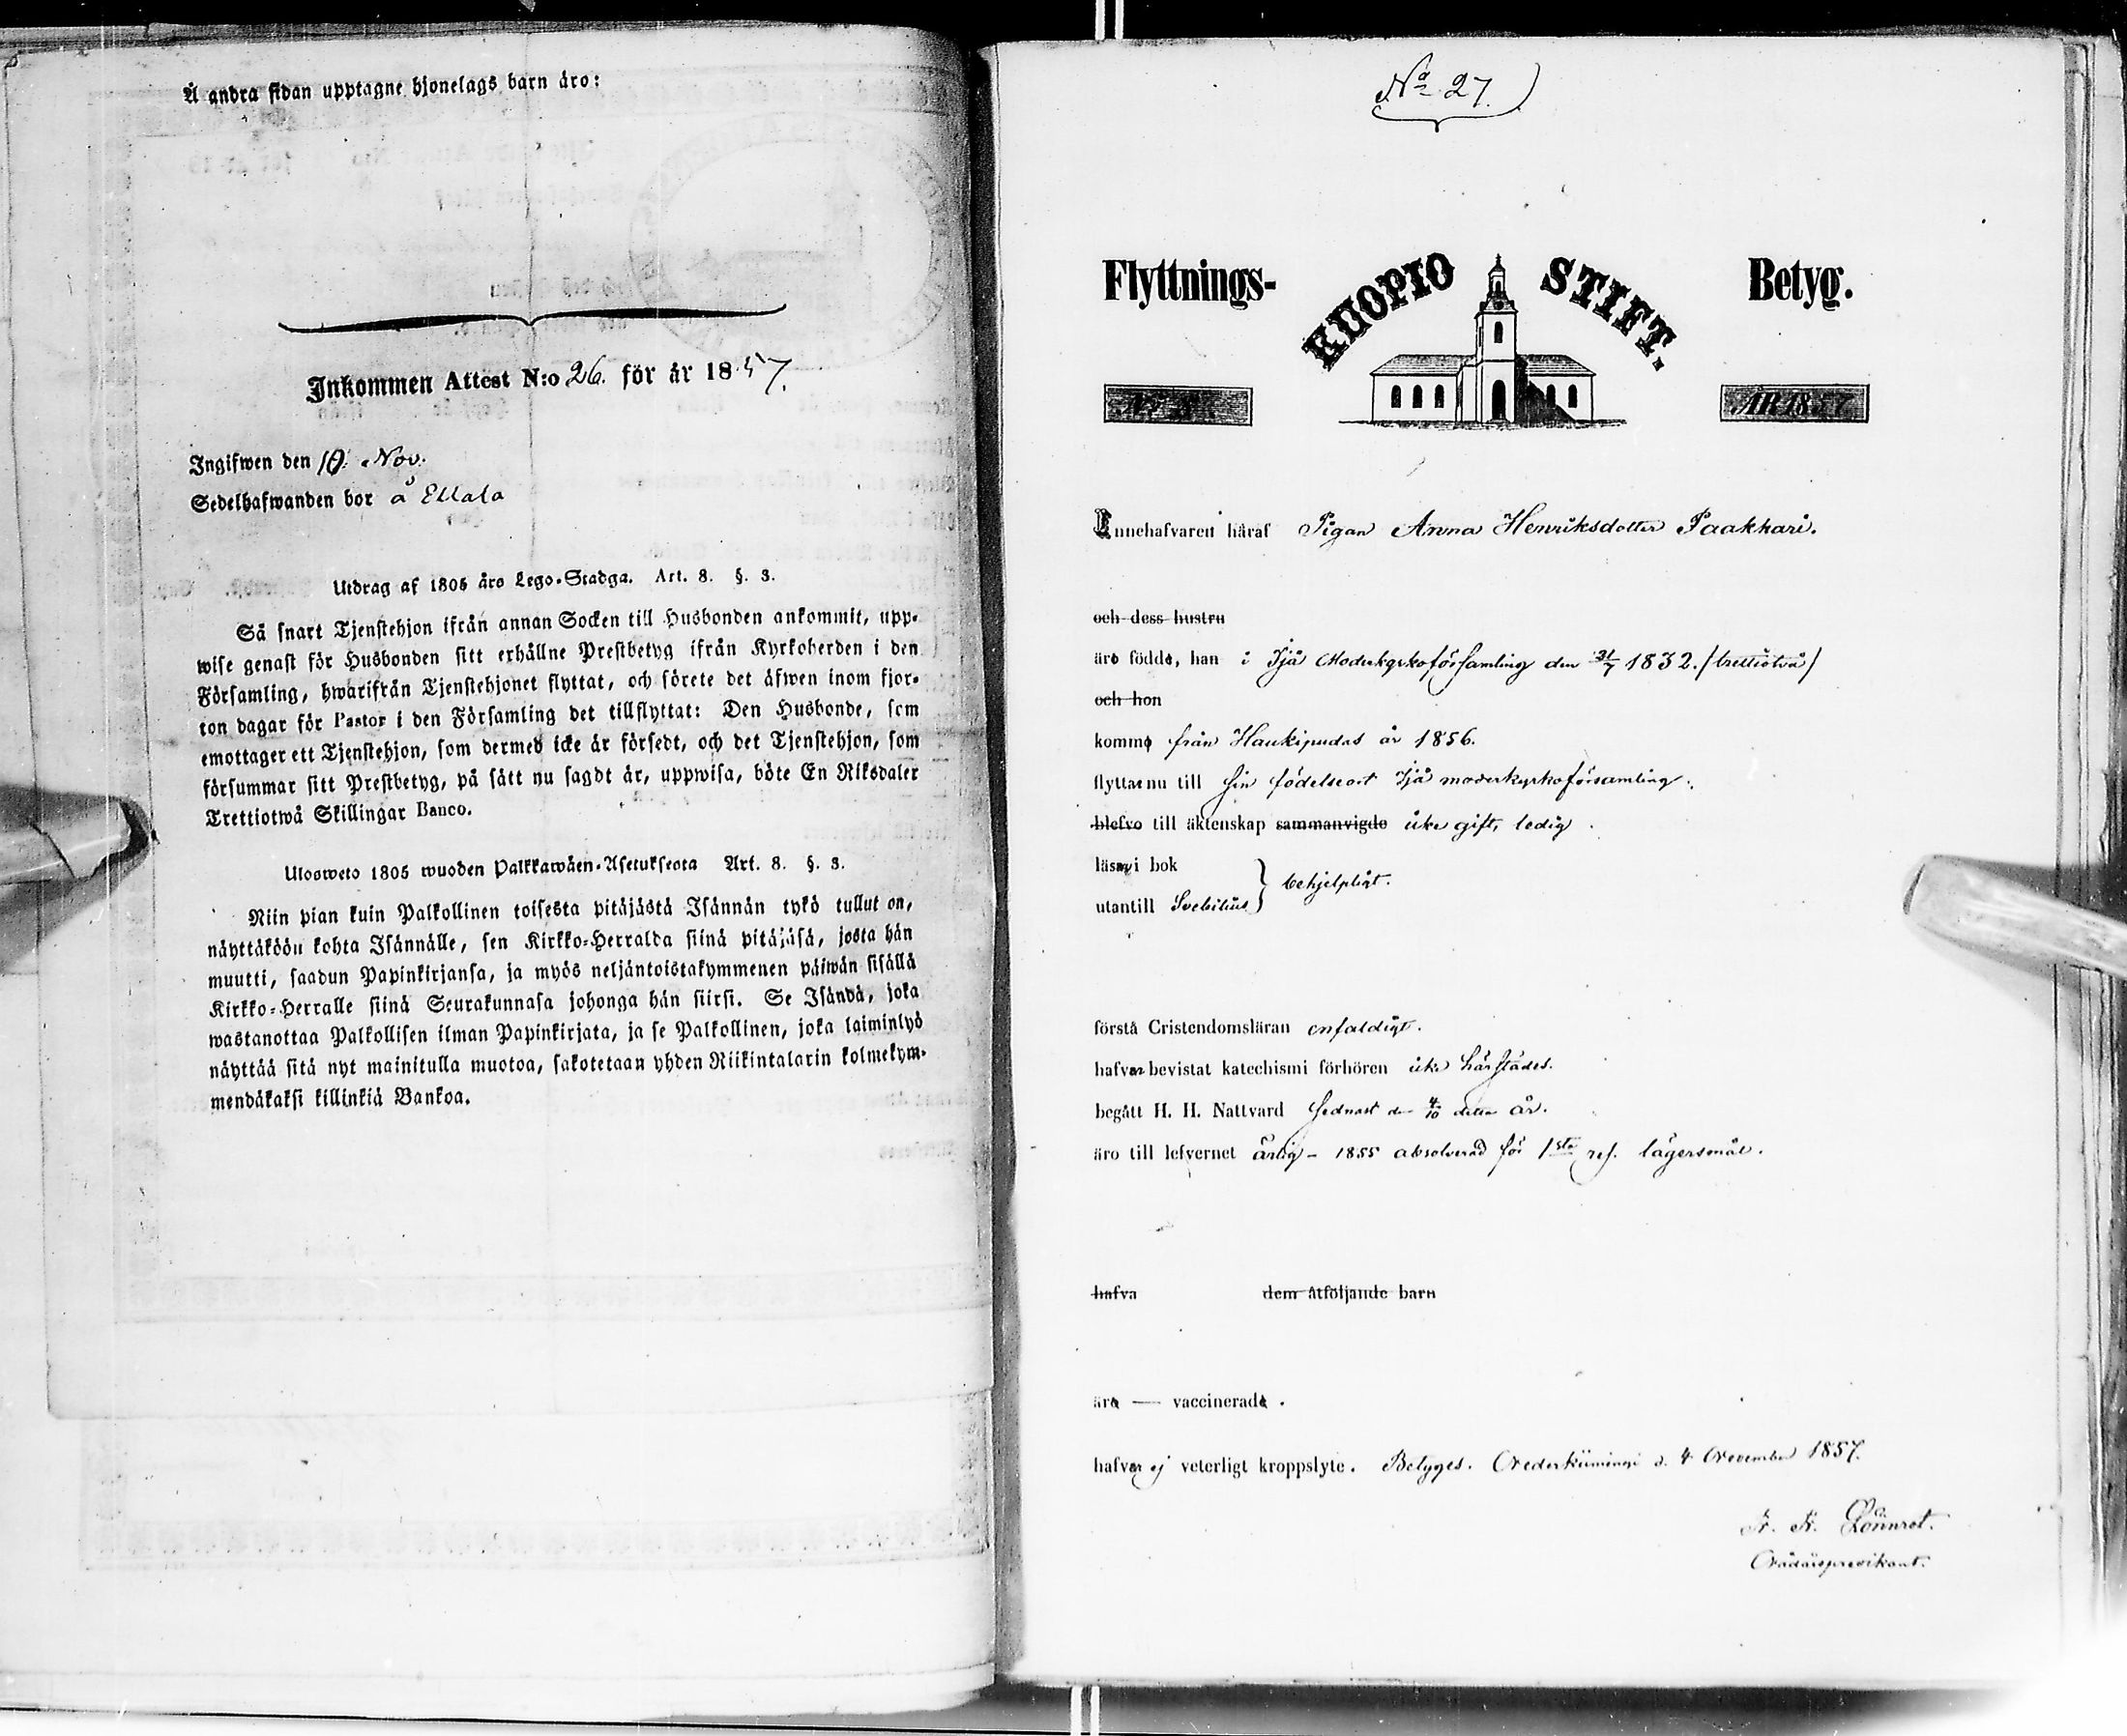 Å andra sidan upptagne hjonelags barn äro:
Inkommen Attest N:o 26. för år 1857.
Ingifwen den 10. Nov.
Sedelhafwanden bor å Ellala
Utdrag af 1805 års Lego-Stadga. Art. 8. §. 3.
Så snart Tjenstehjon ifrån annan Socken till Husbonden ankommit, upp-
wise genast för Husbonden sitt erhållne Prestbetyg ifrån Kyrkoherden i den
Församling, hwarifrån Tjenstehjonet flyttat, och förete det äfwen inom fjor-
ton dagar för Pastor i den Församling det tillflyttat: Den Husbonde, som
emottager ett Tjenstehjon, som dermed icke är försedt, och det Tjenstehjon, som
försummar sitt Prestbetyg, på sätt nu sagdt är, uppwisa, böte En Riksdaler
Trettiotwå Skillingar Banco.
Ulosweto 1805 wuoden Palkkawäen-Asetuksesta Art. 8. §. 3.
Niin pian kuin Palkollinen toisesta pitäjästä Isännän tykö tullut on,
näyttäköön kohta Isännälle, sen Kirkko-Herralda siinä pitäjäsä, josta hän
muutti, saadun Papinkirjansa, ja myös neljäntoistakymmenen päiwän sisällä
Kirkko-Herralle siinä Seurakunnasa johonga hän siirsi. Se Isändä, joka
wastanottaa Palkollisen ilman Papinkirjata, ja se Palkollinen, joka laiminlyö
näyttää sitä nyt mainitulla muotoa, sakotetaan yhden Riikintalarin kolmekym-
mendäkaksi killinkiä Bankoa.
No 27.
Flyttnings- KUOPIO STIFT. Betyg.
ÅR 1857
Innehafvaren häraf Pigan Anna Henriksdotter Paakkari.
och dess hustru
äro födde, han i Ijå Moderkyrkoförsamling den 31/7 1832. /trettiotvå/
och hon
komme från Haukipudas år 1856.
flyttar nu till sin födelseort Ijå moderkyrkoförsamling.
blefvo till äktenskap sammanvigde icke gift, ledig.
läser i bok
utantill Svebilius } behjelpligt.
förstå Cristendomsläran enfaldigt.
hafver bevistat katechismi förhören icke härstädes.
begått H. H. Nattvard sednast den 4/10 detta år.
äro till lefvernet ärlig - 1855 absolverad för 1sta res. lägersmål.
hafva dem åtföljande barn
äro — vaccinerade.
hafver ej veterligt kroppslyte. Betyges. Nederkiimingi d. 4 November 1857.
Lönnrot.
Nådårspredikant.